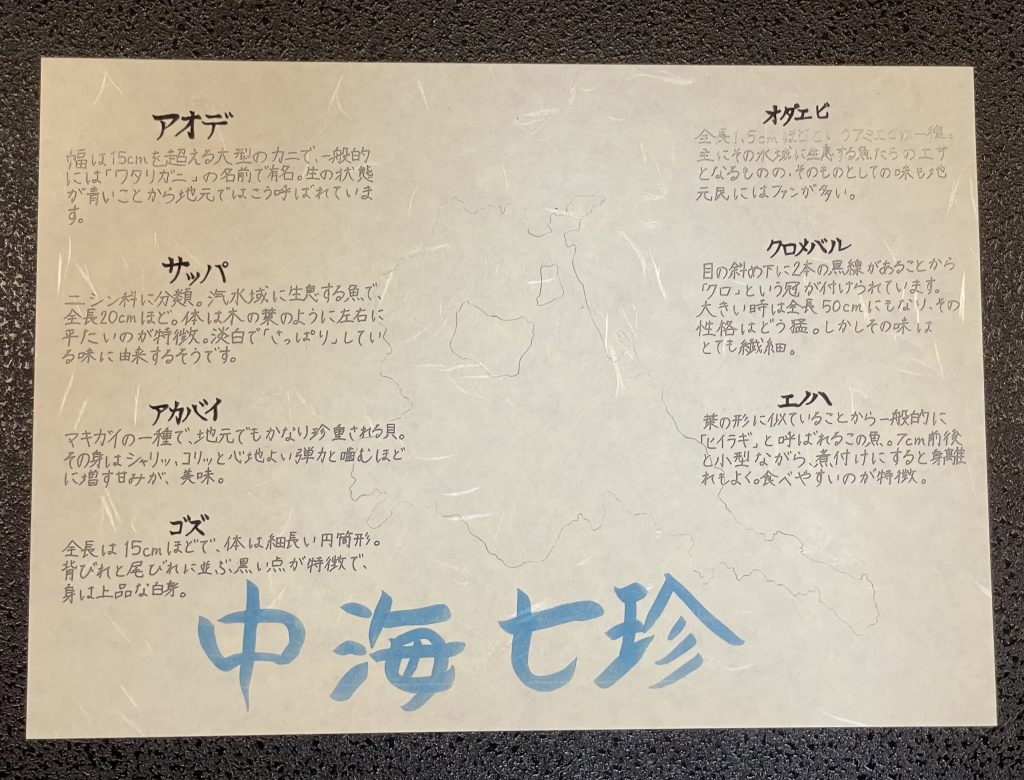 アオデ
幅は15cmを超える大型のカニで、一般的
には「ワタリガニ」の名前で有名。生の状態
が青いことから地元ではこう呼ばれていま
す。
サッパ
ニシン科に分類。汽水域に生息する魚で、
全長20cmほど。体は木の葉のように左右に
平たいのが特徴。淡白で「さっぱり」してい
る味に由来するそうです。
アカバイ
マキガイの一種で、地元でもかなり珍重される貝。
その身はシャリッ、コリッと心地よい弾力と噛むほど
に増す甘みが、美味。
ゴズ
全長は15cmほどで、体は細長い円筒形。
背びれと尾びれに並ぶ黒い点が特徴で、
身は上品な白身。
オダエビ
全長1.5cmほどというアミエビの一種。
主にその水域に生息する魚たちのエサ
となるものの、そのものとしての味も地
元民にはファンが多い。
クロメバル
目の斜め下に2本の黒線があることから
「クロ」という冠が付けられています。
大きい時は全長50cmにもなり、その
性格はどう猛。しかしその味は
とても繊細。
エノハ
葉の形に似ていることから一般的に
「ヒイラギ」と呼ばれるこの魚。7cm前後
と小型ながら、煮付けにすると身離
れもよく。食べやすいのが特徴。
中海七珍